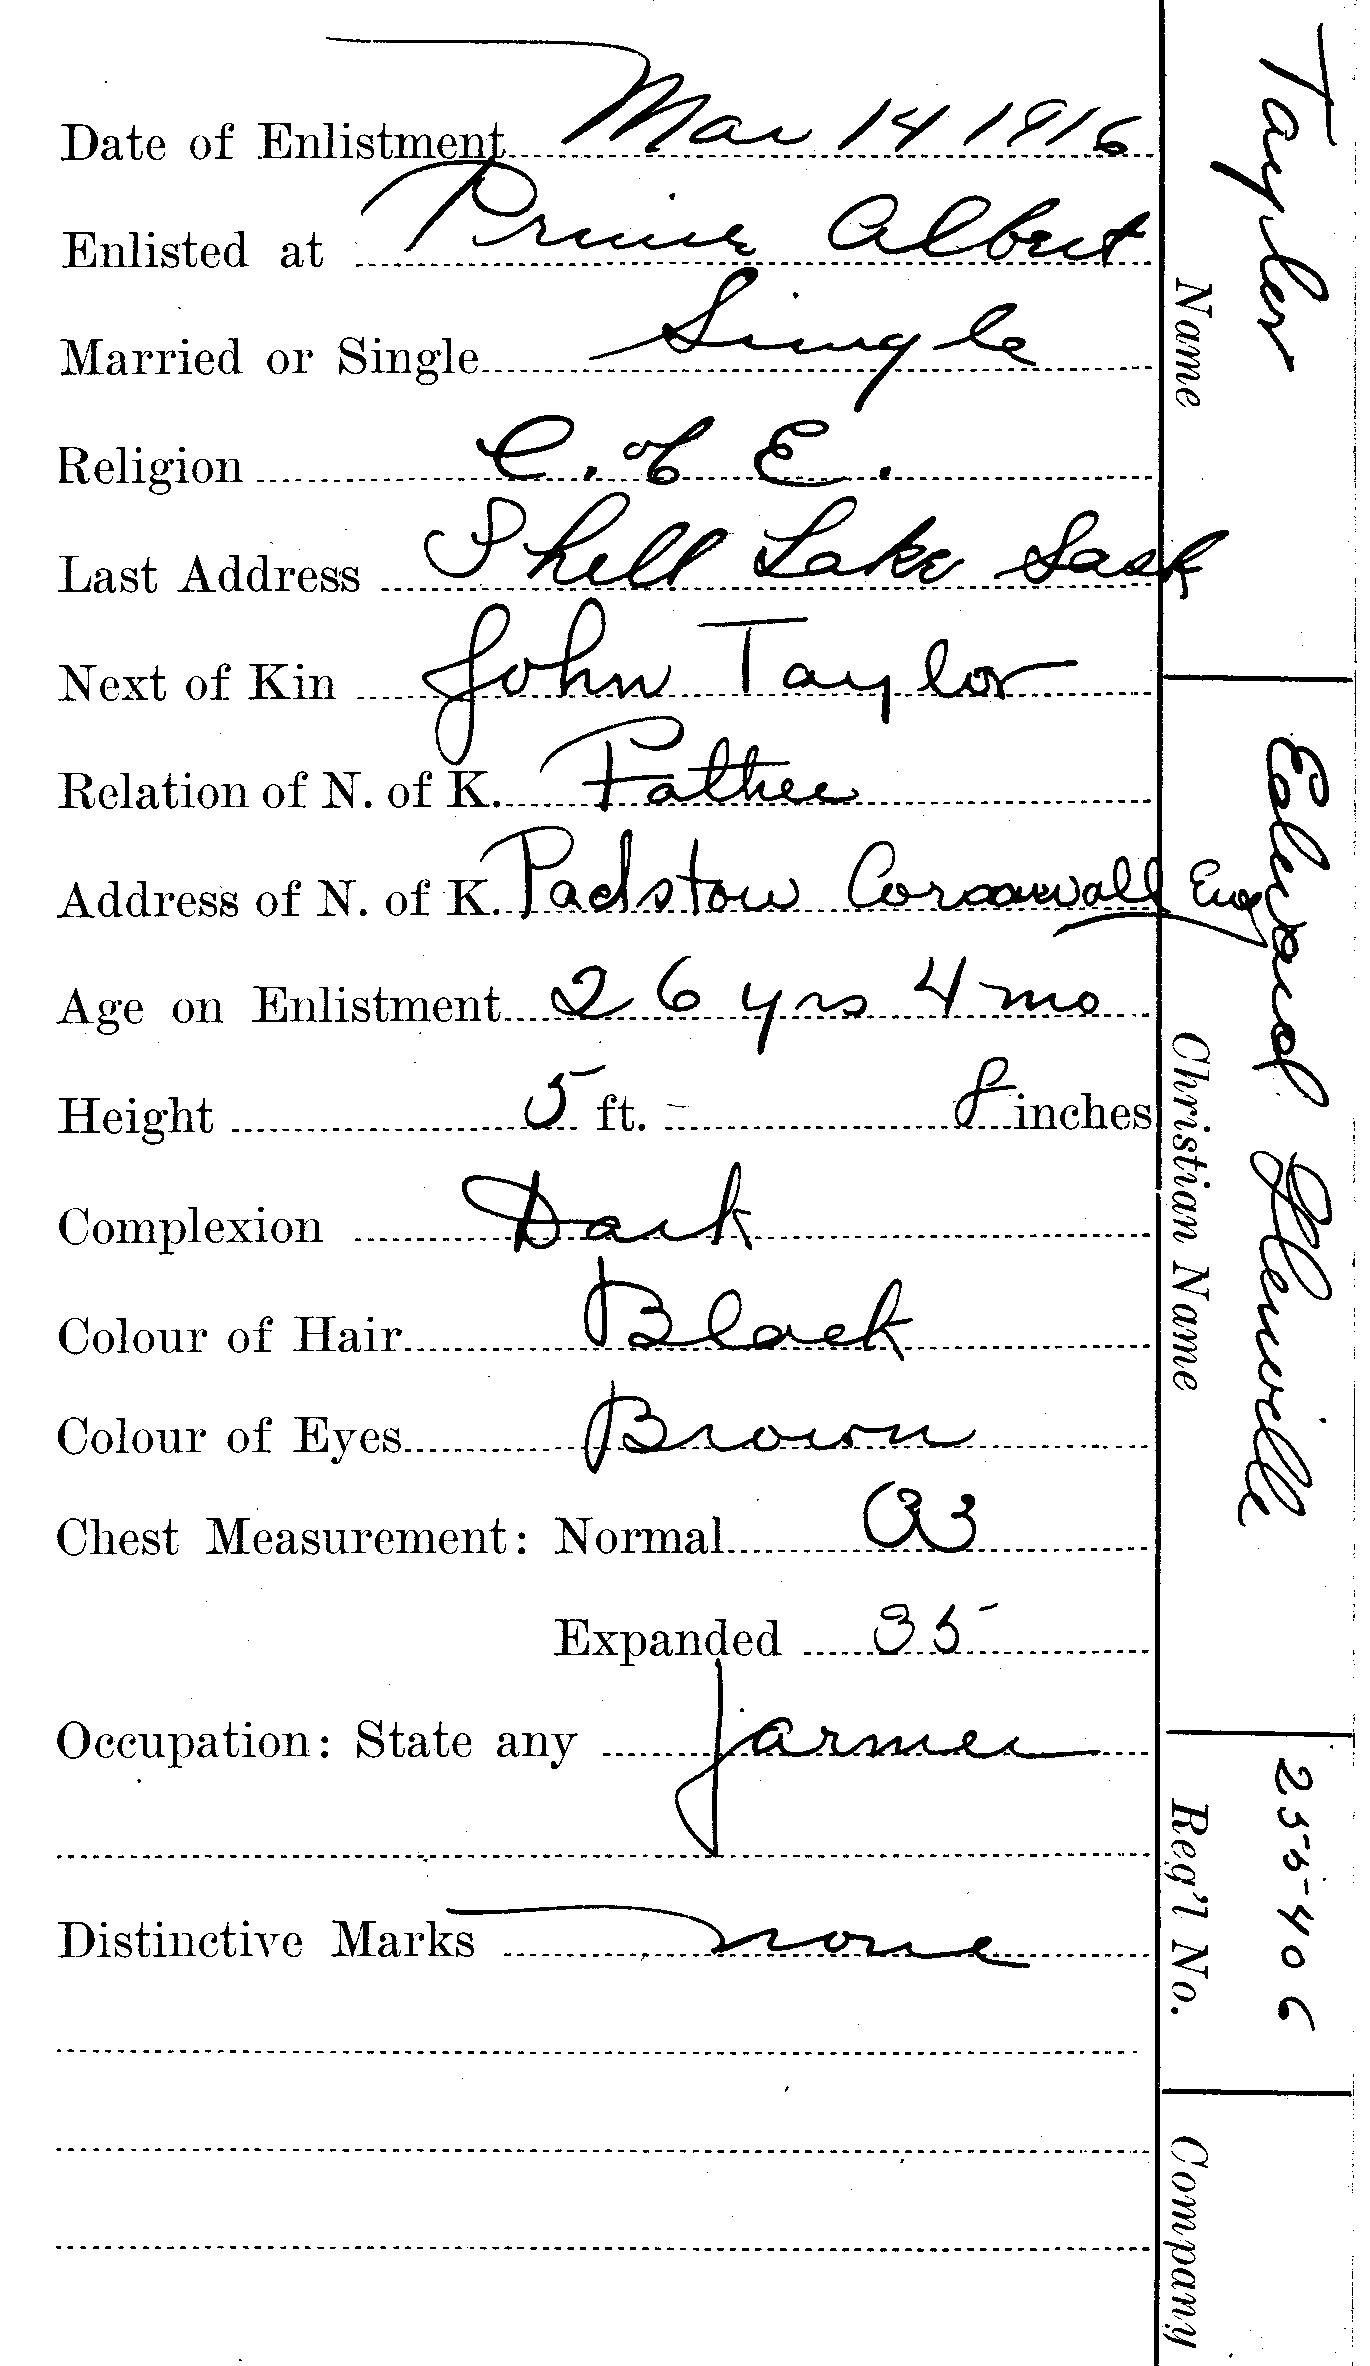 Date of Enlistment Mar 14 1916
Enlisted at Prince Albert
Married or Single Single
Religion C. of E.
Last Address Shell Lake Sask
Next of Kin John Taylor
Relation of N. of K. Father
Address of N. of K. Padstow Cornwall Eng
Age on Enlistment 26 yrs 4 mo
Height 5 ft. - 8 inches
Complexion Dark
Colour of Hair Black
Colour of Eyes Brown
Chest Measurement: Normal 33
Expanded 35
Occupation: State any Farmer
Distinctive Marks none
Taylor
Name
Edward Glenville
Christian Name
255406
Reg'l No.
Company